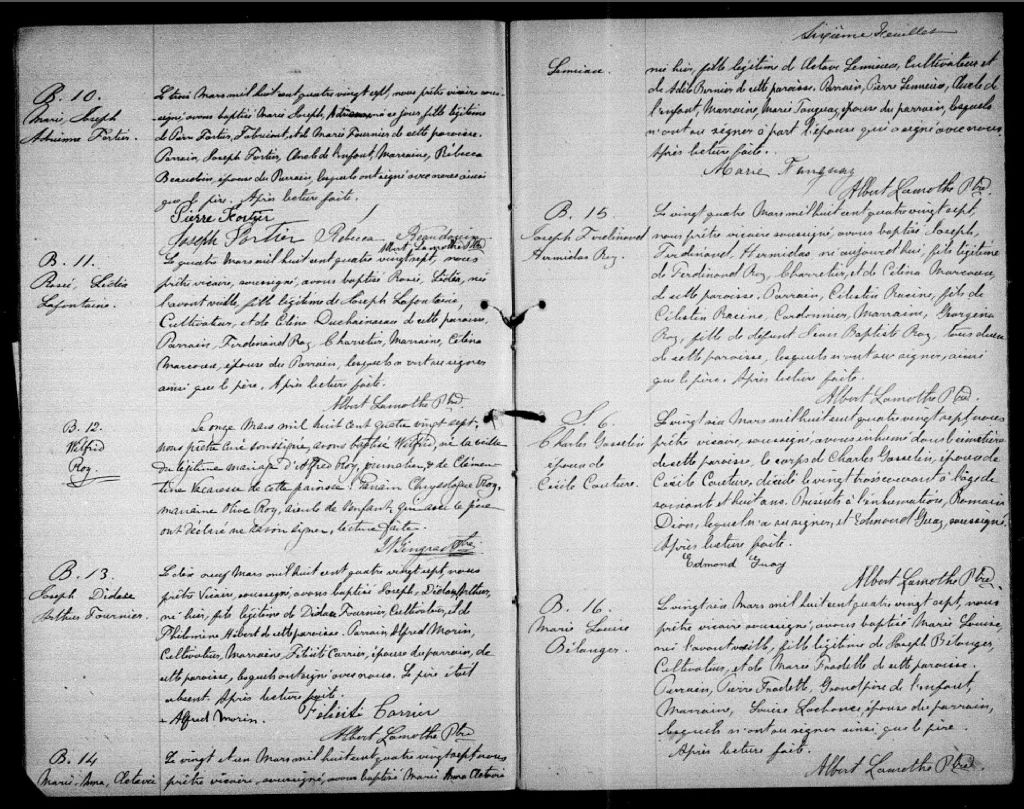 B. 10.
Marie, Joseph
Adrienne Fortier.
Le trois Mars mil huit cent quatre vingt sept, nous prêtre vicaire sous-
signé, avons baptisé Marie Joseph, Adrienne né ce jour, fille légitime
de Pierre Fortier, Fabricant, et de Marie Fournier de cette paroisse.
Parrain, Joseph Fortier, Oncle de l'enfant, Marraine, Rébecca
Beaudoin, épouse du Parrain, lesquels ont signé avec nous ainsi
que le père. Après lecture faite.
Pierre Fortier
Joseph Fortier Rebecca Beaudouin
Albert Lamothe Ptre
B. 11.
Rosé, Lidéa
Lafontaine.
Le quatre Mars mil huit cent quatre vingt sept, nous
prêtre vicaire, soussigné, avons baptisé Rosé, Lidéa, né
l'avant veille, fille légitime de Joseph Lafontaine,
Cultivateur, et de Célina Duchaineau de cette paroisse,
Parrain, Ferdinand Roy Charretier, Marraine, Célina
Marcoux, épouse du Parrain, lesquels n'ont su signer
ainsi que le père. Après lecture faite.
Albert Lamothe Ptre
B. 12.
Wilfrid
Roy.
Le onze Mars mil huit cent quatre vingt sept,
nous prêtre curé soussigné, avons baptisé Wilfrid, né la veille
du légitime mariage d'Alfred Roy, journalier, & de Clémen-
tine de cette paroisse. Parrain Chrysologue Roy,
marraine Olive Roy, tante de l'enfant, qui avec le père
ont déclaré ne savoir signer, lecture faite.
Ptre
B. 13.
Joseph Didace
Arthur Fournier.
Le dix neuf Mars mil huit cent quatre vingt sept, nous
prêtre Vicaire, soussigné, avons baptisé Joseph, Didace, Arthur,
né hier, fils légitime de Didace Fournier, Cultivateur, et de
Philomine Hébert de cette paroisse. Parrain, Alfred Morin,
Cultivateur, Marraine, Félicité Carrier, épouse du parrain, de
cette paroisse, lesquels ont signé avec nous. Le père était
absent. Après lecture faite.
Alfred Morin. Félicité Carrier
Albert Lamothe Ptre
B. 14
Marie, Anna, Octavie
Le vingt et un Mars mil huit cent quatre vingt sept nous
prêtre vicaire, soussigné, avons baptisé Marie Anna Octavie
Sixième Feuillet
Lemieux.
née hier, fille légitime de Octave Lemieux, Cultivateur et
de Adèle Bernier de cette paroisse. Parrain, Pierre Lemieux, Oncle de
l'enfant, Marraine, Marie Tanguay, épouse du parrain, lesquels
n'ont su signer à part l'épouse qui a signé avec nous.
Après lecture faite.
Marie Tanguay
Albert Lamothe Ptre
B. 15.
Joseph Ferdinand
Hermidas Roy.
Le vingt quatre Mars mil huit cent quatre vingt sept,
nous prêtre vicaire soussigné, avons baptisé Joseph,
Ferdinand, Hermidas né aujourd'hui, fils légitime
de Ferdinand Roy, Charretier, et de Célina Marcoux,
de cette paroisse. Parrain, Célestin Racine, fils de
Célestin Racine, Cordonnier, Marraine, Georgena
Roy, fille de défunt Jean Baptiste Roy, tous deux
de cette paroisse, lesquels n'ont su signer, ainsi
que le père. Après lecture faite.
Albert Lamothe Ptre
S. 6.
Charles Gosselin
époux de
Cécile Couture.
Le vingt six Mars mil huit cent quatre vingt sept, nous
prêtre vicaire, soussigné, avons inhumé dans le cimetière
de cette paroisse, le corps de Charles Gosselin, époux de
Cécile Couture, décédé le vingt trois courant à l'âge de
soixante et huit ans. Présents à l'inhumation, Romain
Dion, lequel n'a su signer, et Edmond Guay, soussigné.
Après lecture faite.
Edmond Guay
Albert Lamothe Ptre
B. 16.
Marie Louise
Bélanger.
Le vingt six Mars mil huit cent quatre vingt sept, nous
prêtre vicaire soussigné, avons baptisé Marie Louise,
née l'avant veille, fille légitime de Joseph Bélanger,
Cultivateur, et de Marie Fradette de cette paroisse.
Parrain, Pierre Fradette, Grand père de l'enfant,
Marraine, Louise Lachance, épouse du parrain,
lesquels n'ont su signer ainsi que le père.
Après lecture faite.
Albert Lamothe Ptre